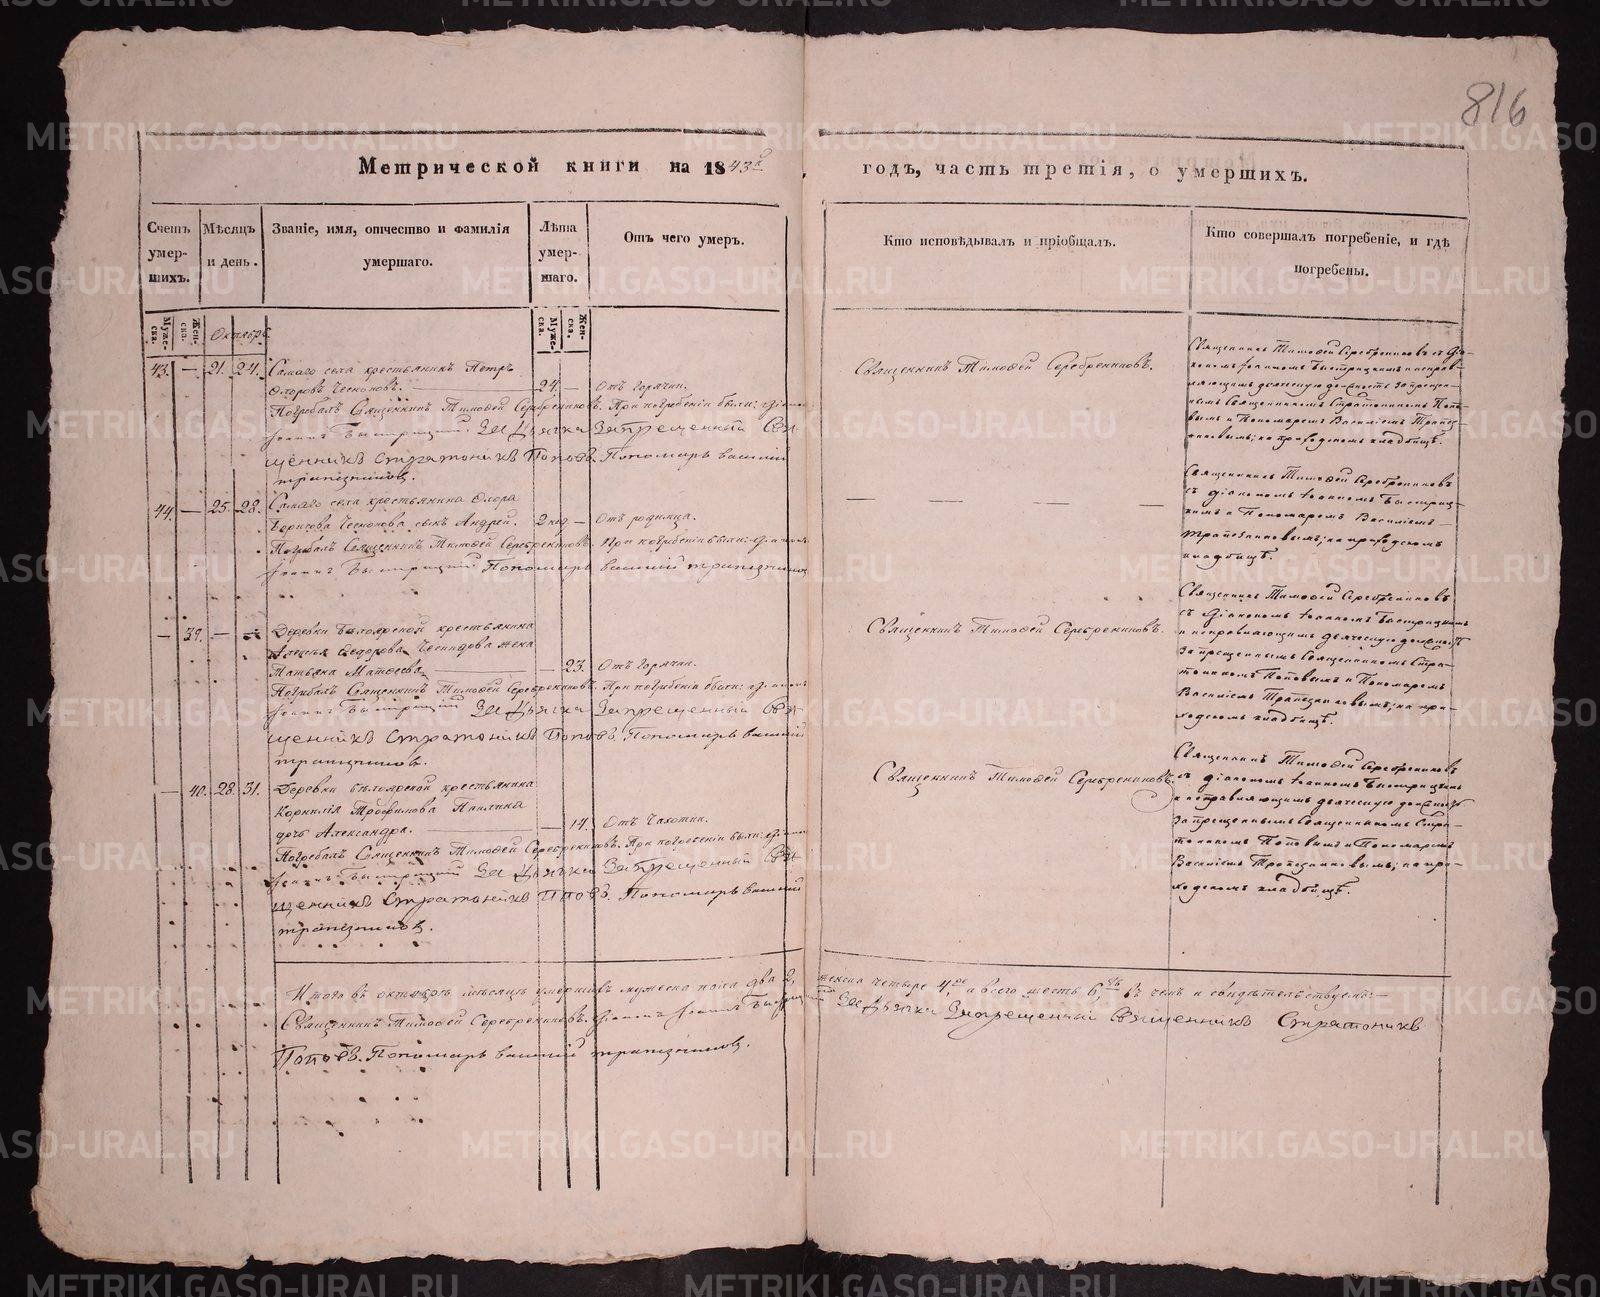 816
Метрической книги на 1843й годъ, часть третія, о умершихъ.
Счетъ умер- шихъ.
Мѣсяцъ и день.
Званіе, имя, отчество и фамилія умершаго.
Лѣта умер- шаго.
Отъ чего умеръ.
Кто исповѣдывалъ и пріобщалъ.
Кто совершалъ погребеніе, и гдѣ погребены.
Муже- ска.
Жен- ска.
Октябрь
Муже- ска.
Жен- ска.
43. — 21. 24. Самаго села крестьянинъ Петръ
Флоровъ — 24. — Отъ горячки.
Погребалъ Священникъ Тимоѳей Серебрениковъ. При погребеніи были: Діаконъ
Іоаннъ Быстрицкій. За Дьячка Запрещенный Свя-
щенникъ Стратоникъ Поповъ. Пономарь Василий
трапезниковъ.
Священникъ Тимоѳей Серебрениковъ.
Священникъ Тимоѳей Серебрениковъ съ Діа-
кономъ Іоанномъ Быстрицкимъ и исправ-
ляющимъ дьяческую должность запрещен-
нымъ Священникомъ Стратоникомъ Попо-
вымъ и Пономаремъ Василіемъ Трапез-
никовымъ; на приходскомъ кладбищѣ.
44. — 25. 28. Самаго села крестьянина Флора
Борисова сынъ Андрей. 2 нед. — Отъ родимца.
Погребалъ Священникъ Тимоѳей Серебрениковъ. При погребеніи были: Діаконъ
Іоаннъ Быстрицкий Пономарь Василий трапезниковъ
— — — —
Священникъ Тимоѳей Серебрениковъ
съ Діакономъ Іоанномъ Быстриц-
кимъ и Пономаремъ Василіемъ —
Трапезниковымъ; на приходскомъ
кладбищѣ.
— 39. — — Деревни Бѣлоярской крестьянина
Алексѣя Ѳедорова жена
Татьяна Матвеева — — 23. Отъ горячки.
Погребалъ Священникъ Тимоѳей Серебрениковъ. При погребеніи были: Діаконъ
Іоаннъ Быстрицкій За Дьячка Запрещенный Свя-
щенникъ Стратоникъ Поповъ. Пономарь Василий
трапезниковъ.
Священникъ Тимоѳей Серебрениковъ.
Священникъ Тимоѳей Серебрениковъ
съ Діакономъ Іоанномъ Быстрицкимъ
и исправляющимъ дьяческую должность
запрещеннымъ Священникомъ Стра-
тоникомъ Поповымъ и Пономаремъ
Василіемъ Трапезниковымъ; на при-
ходскомъ кладбищѣ.
— 40. 28. 31. Деревни Бѣлоярской крестьянина
Корнилія Трофимова
дочь Александра. — — 14. Отъ чахотки.
Погребалъ Священникъ Тимоѳей Серебрениковъ. При погребеніи были: Діаконъ
Іоаннъ Быстрицкій За Дьячка Запрещенный Свя-
щенникъ Стратоникъ Поповъ. Пономарь Василий
трапезниковъ.
Священникъ Тимоѳей Серебрениковъ.
Священникъ Тимоѳей Серебрениковъ
съ Діакономъ Іоанномъ Быстрицкимъ
и исправляющимъ дьяческую должность
запрещеннымъ Священникомъ Стра-
тоникомъ Поповымъ и Пономаремъ
Василіемъ Трапезниковымъ; на при-
ходскомъ кладбищѣ.
Итого въ октябрѣ мѣсяцѣ умершихъ мужеска пола два 2, женска четыре 4, а всего шесть 6, въ чемъ и свидѣтельствуемъ: —
Священникъ Тимоѳей Серебрениковъ. Діаконъ Іоаннъ Быстрицкій За Дьячка Запрещенный Священникъ Стратоникъ
Поповъ. Пономарь Василий трапезниковъ.